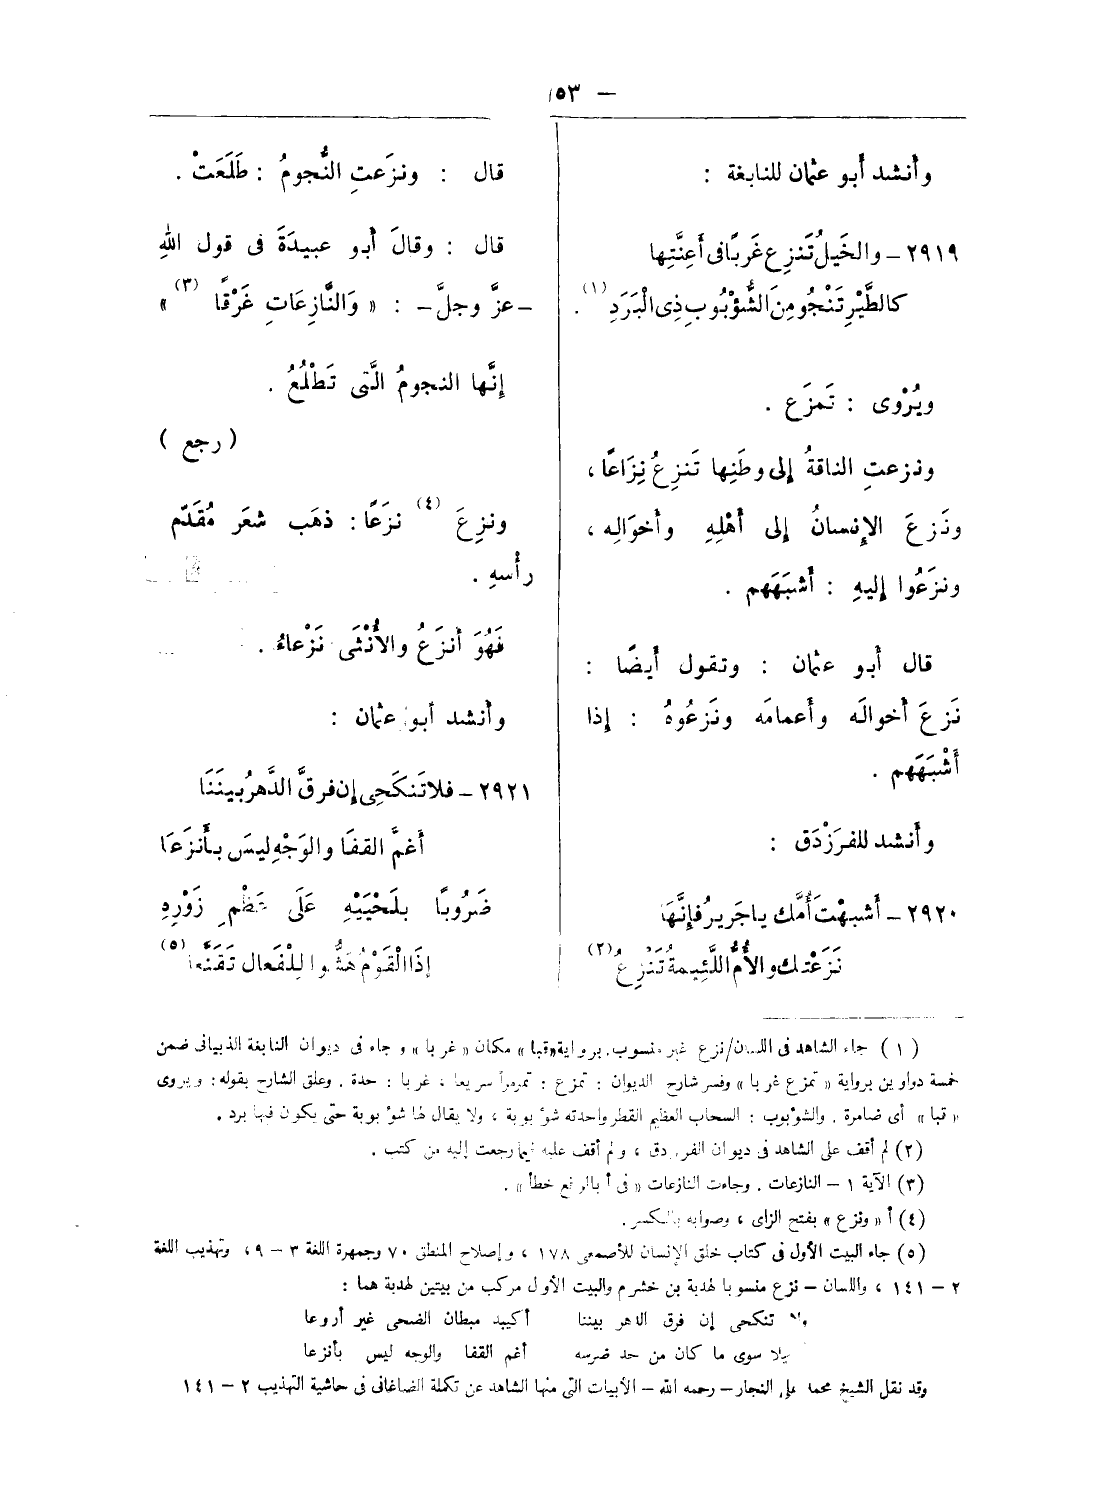 — ١٥٣
وأنشد أبو عثمان للنابغة :
٢٩١٩ – والخَيلُ تَنزِع غَربًا فى أَعِنَّتِها
كالطَّيْرِ تَنْجُو مِنَ الشُّؤْبُوبِ ذِى الْبَرَدِ (١) .
ويُرْوى : تَمزَع .
ونزعتِ الناقةُ إلى وطَنِها تَنزِعُ نِزَاعًا ،
ونَزعَ الإنسانُ إلى أَهْلِهِ وأخوَالِه ،
ونزَعُوا إليهِ : أَشبَهَهم .
قال أبو عثمان : وتقول أيضًا :
نَزعَ أخوالَه وأعمامَه ونَزعُوهُ : إذا
أَشْبَهَهم .
وأنشد للفرَزْدَق :
٢٩٢٠ – أَشبهْتَ أُمَّك ياجَريرُ فإنَّهَا
نَزَعَتْك والأُمُّ اللَّئِيمةُ تَنْزِعُ (٢)
قال : ونزَعتِ النُّجومُ : طَلَعَتْ .
قال : وقالَ أبو عبيدَةَ فى قول اللهِ
–عزَّ وجلَّ– : « وَالنَّازِعَاتِ غَرْقًا (٣) »
إنَّها النجومُ الَّتى تَطْلُعُ .
( رجع )
ونزِعَ (٤) نزَعًا : ذهَب شعَر مُقَدَّم
رأْسهِ .
فَهُوَ أَنزَعُ والأُنْثَى نَزْعاءُ .
وأنشد أبو عثمان :
٢٩٢١ – فلا تَنكَحِى إن فرقَّ الدَّهرُ بينَنَا
أَغمَّ القفَا والوَجْهِ ليسَ بأَنزَعَا
ضَرُوبًا بلَحْيَيْهِ عَلَى عَظْمِ زَوْرِهِ
إذَا الْقَوْمُ هَشُّوا لِلْفَعال تَقَنَّعا (٥)
(١) جاء الشاهد فى اللسان/نزع غير منسوب. برواية «قبا» مكان «غربا» وجاء فى ديوان النابغة الذبيانى ضمن
خمسة دواوين برواية « تمزع غربا » وفسر شارح الديوان : تمزع : تمرمراً سريعا ، غربا : حدة . وعلق الشارح بقوله : ويروى
« قبا » أى ضامرة . والشؤبوب : السحاب العظيم القطر واحدته شؤبوبة ، ولا يقال لها شؤبوبة حتى يكون فيها برد .
(٢) لم أقف على الشاهد فى ديوان الفرزدق ، ولم أقف عليه فيما رجعت إليه من كتب .
(٣) الآية ١ – النازعات . وجاءت النازعات « فى أ بالرفع خطأ » .
(٤) أ « ونزع » بفتح الزاى ، وصوابه بالكسر .
(٥) جاء البيت الأول فى كتاب خلق الإنسان للأصمعى ١٧٨ ، وإصلاح المنطق ٧٠ وجمهرة اللغة ٣ – ٩ ، وتهذيب اللغة
٢ – ١٤١ ، واللسان – نزع منسوبا لهدبة بن خشرم والبيت الأول مركب من بيتين لهدبة هما :
ولا تنكحى إن فرق الدهر بيننا أكيبد مبطان الضحى غير أروعا
سوى ما كان من حد ضرسه أغم القفا والوجه ليس بأنزعا
وقد نقل الشيخ محمد على النجار – رحمه الله – الأبيات التى منها الشاهد عن تكملة الصاغانى فى حاشية التهذيب ٢ – ١٤١